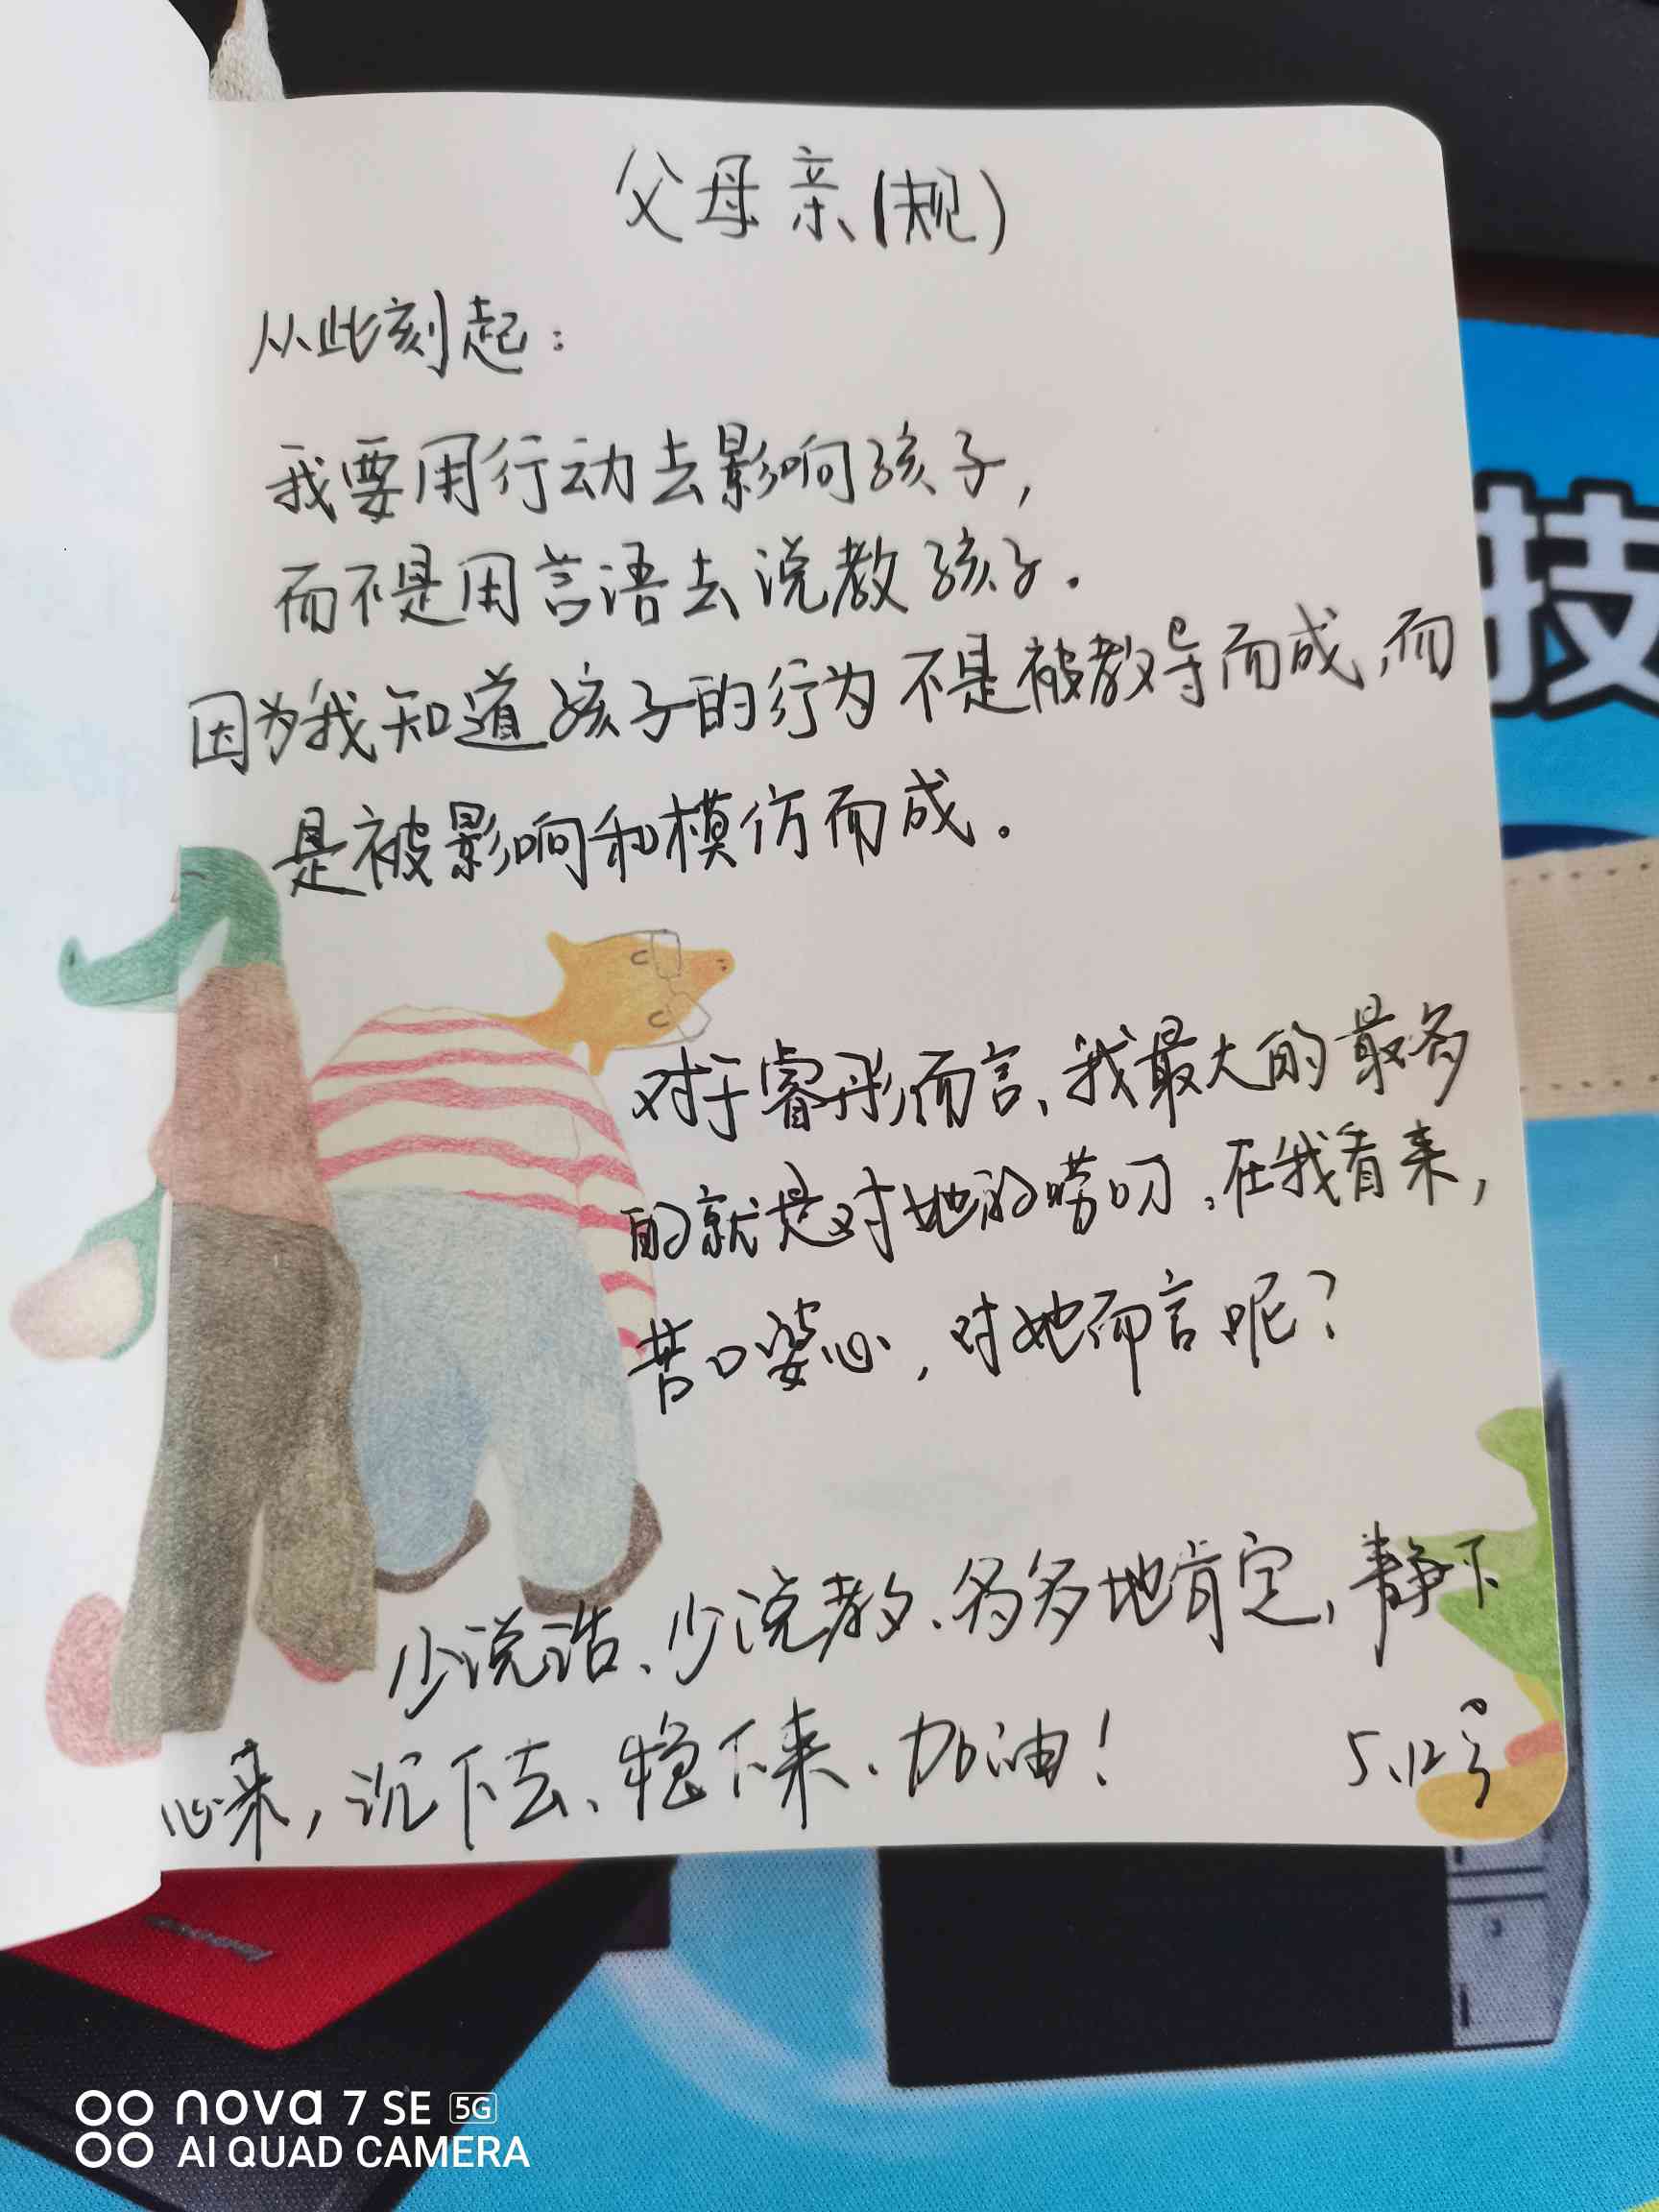 父母亲(规)
从此刻起：
我要用行动去影响孩子，
而不是用言语去说教孩子.
因为我知道孩子的行为不是被教导而成,而
是被影响和模仿而成。
对于睿彤而言、我最大的最多
的就是对她的唠叨,在我看来,
苦口婆心,对她而言呢?
少说话、少说教、多多地肯定,静下
心来,沉下去、稳下来、加油!
5.12号
技
nova 7 SE 5G
AI QUAD CAMERA